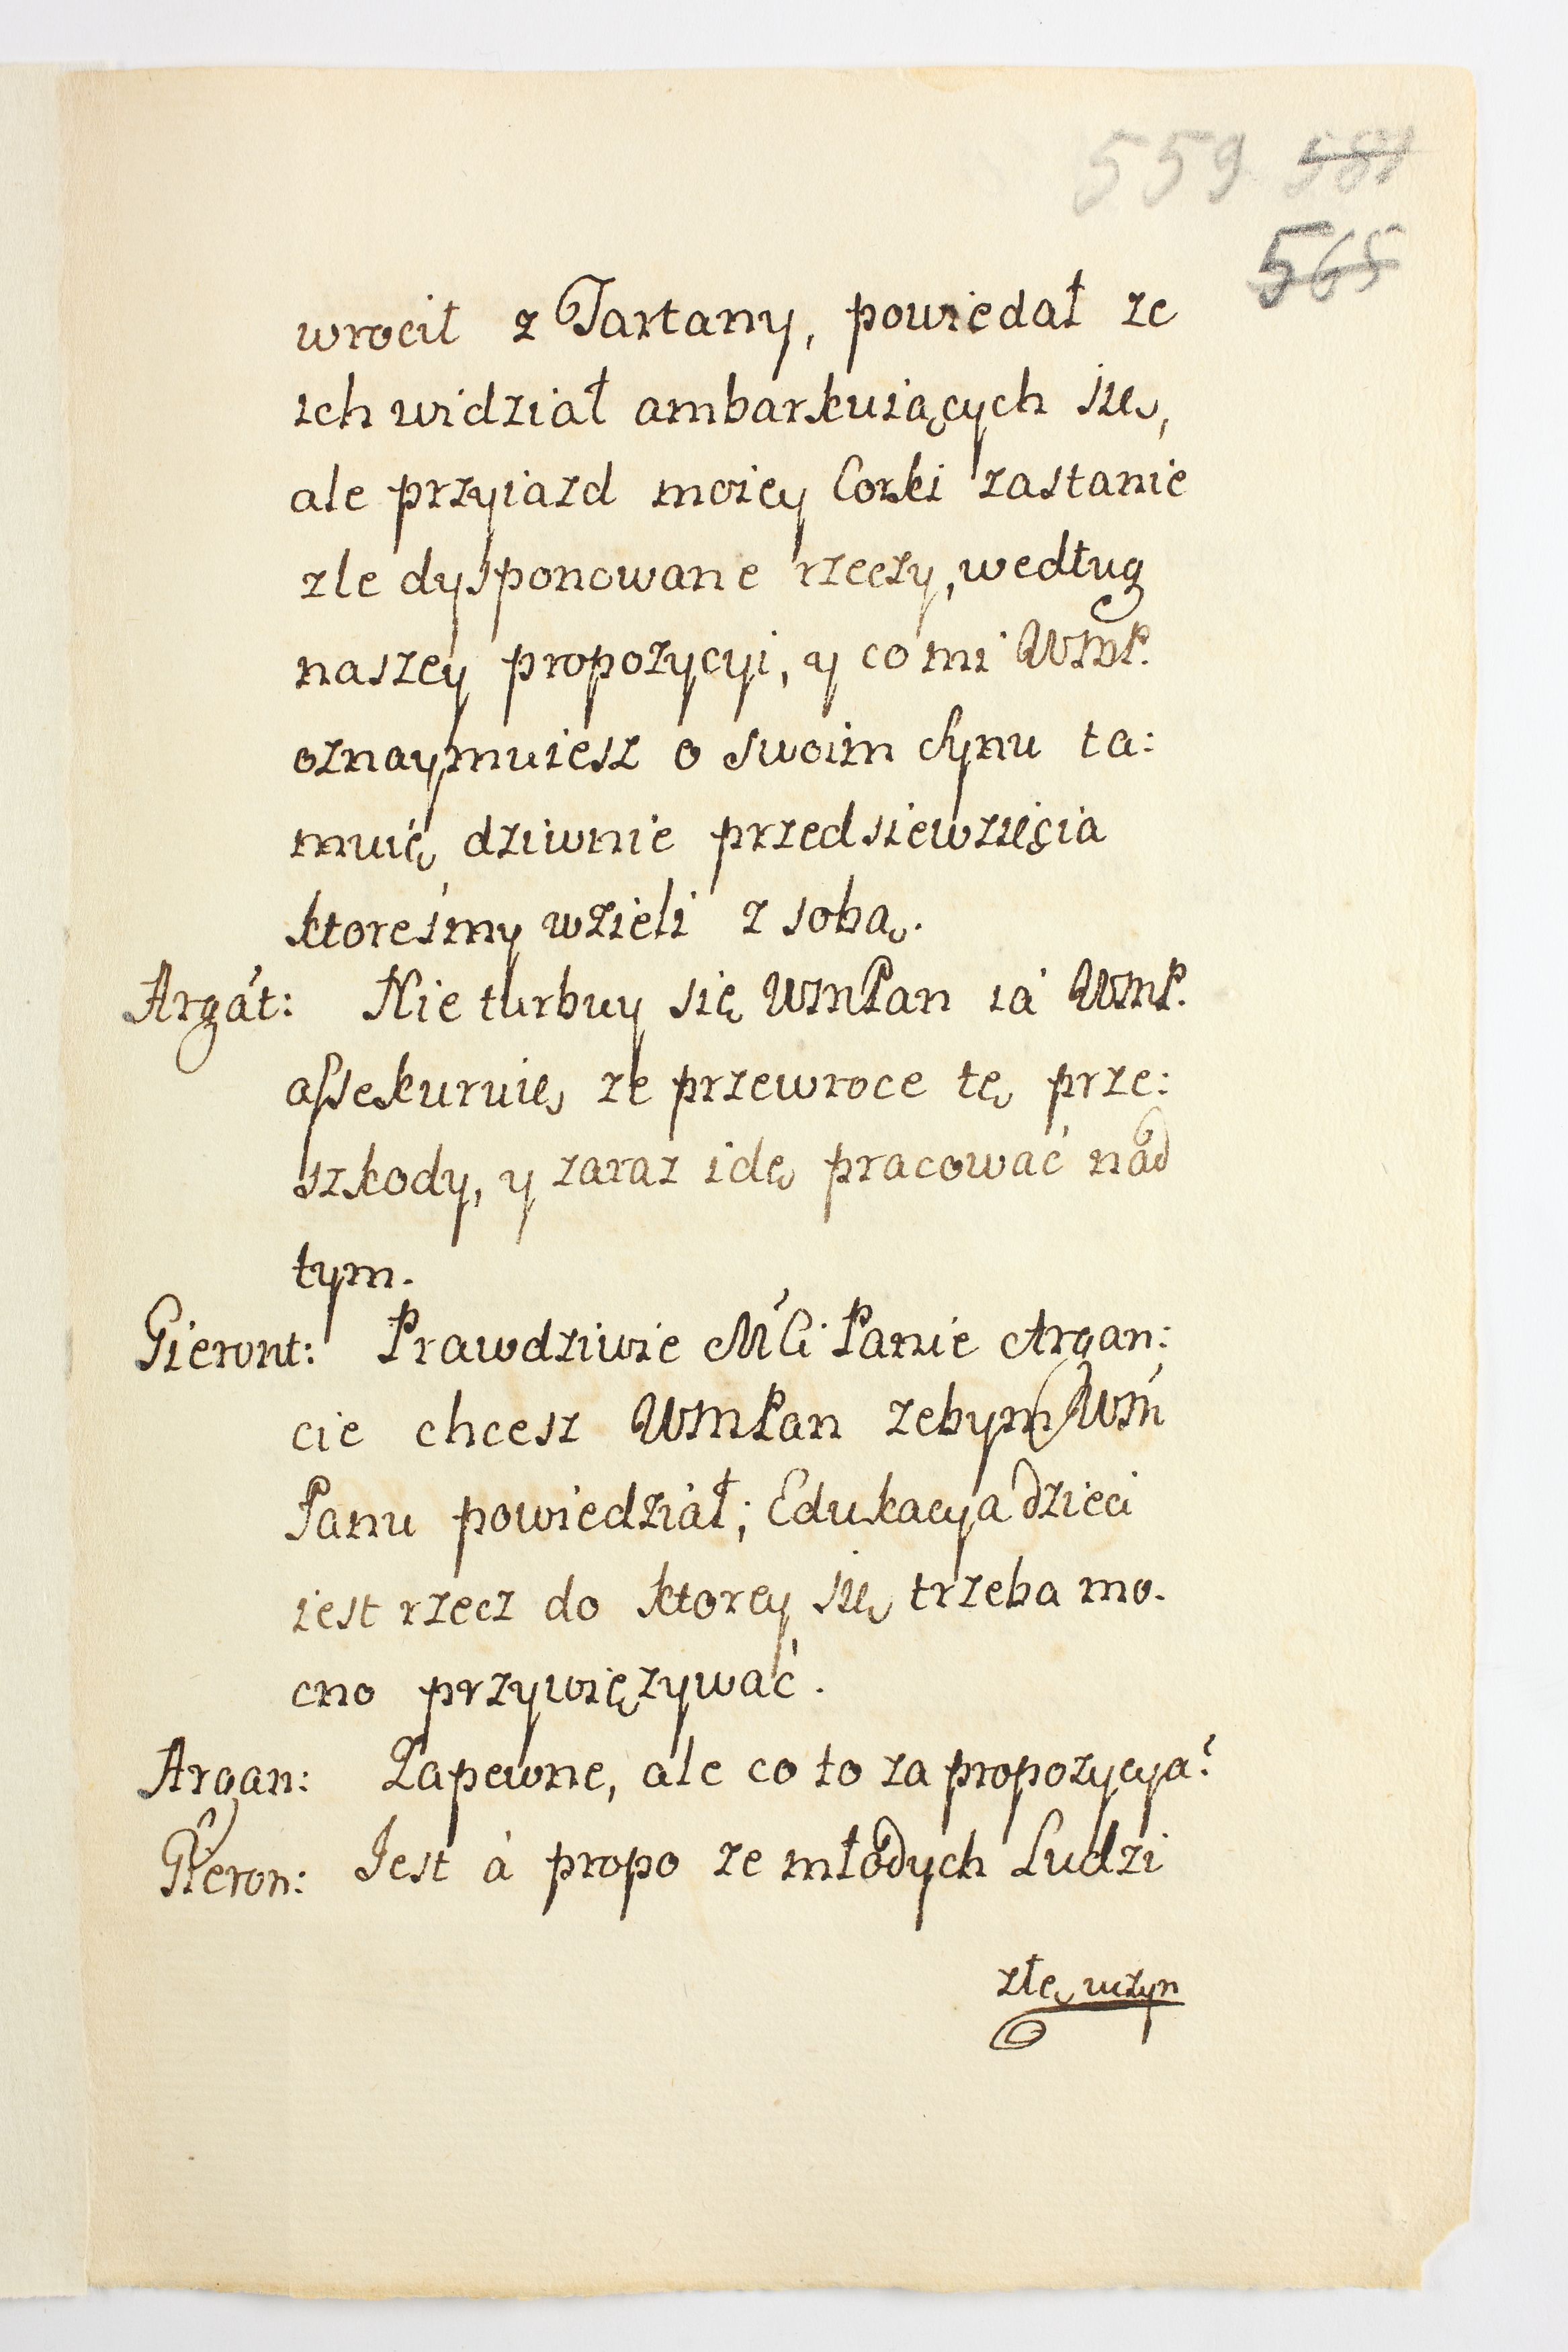 559 581
565
wrocił z Tartany, powiedał ze
ich widział ambarkuiących się,
ale przyiazd moiey Corki zastanie
zle dysponowane rzeczy, według
naszey propozycyi, y co mi WMP.
oznaymuiesz o swoim Synu ta:
muię dziwnie przedsiewzięcia
ktoreśmy wzieli z sobą.
Argát: Nie turbuy się WMPan ia WMP.
assekuruię ze przewroce tę prze:
szkody, y zaraz idę pracować nad
tym.
Gieront: Prawdziwie MCi Panie Argan:
cie chcesz WMPan zebym WM
Panu powiedział; Edukacya dzieci
iest rzecz do ktorey się trzeba mo.
cno przywięzywać.
Argan: Zapewne, ale co to za propozycya?
Gieron: Jest á propo ze młodych Ludzi
złe uczyn